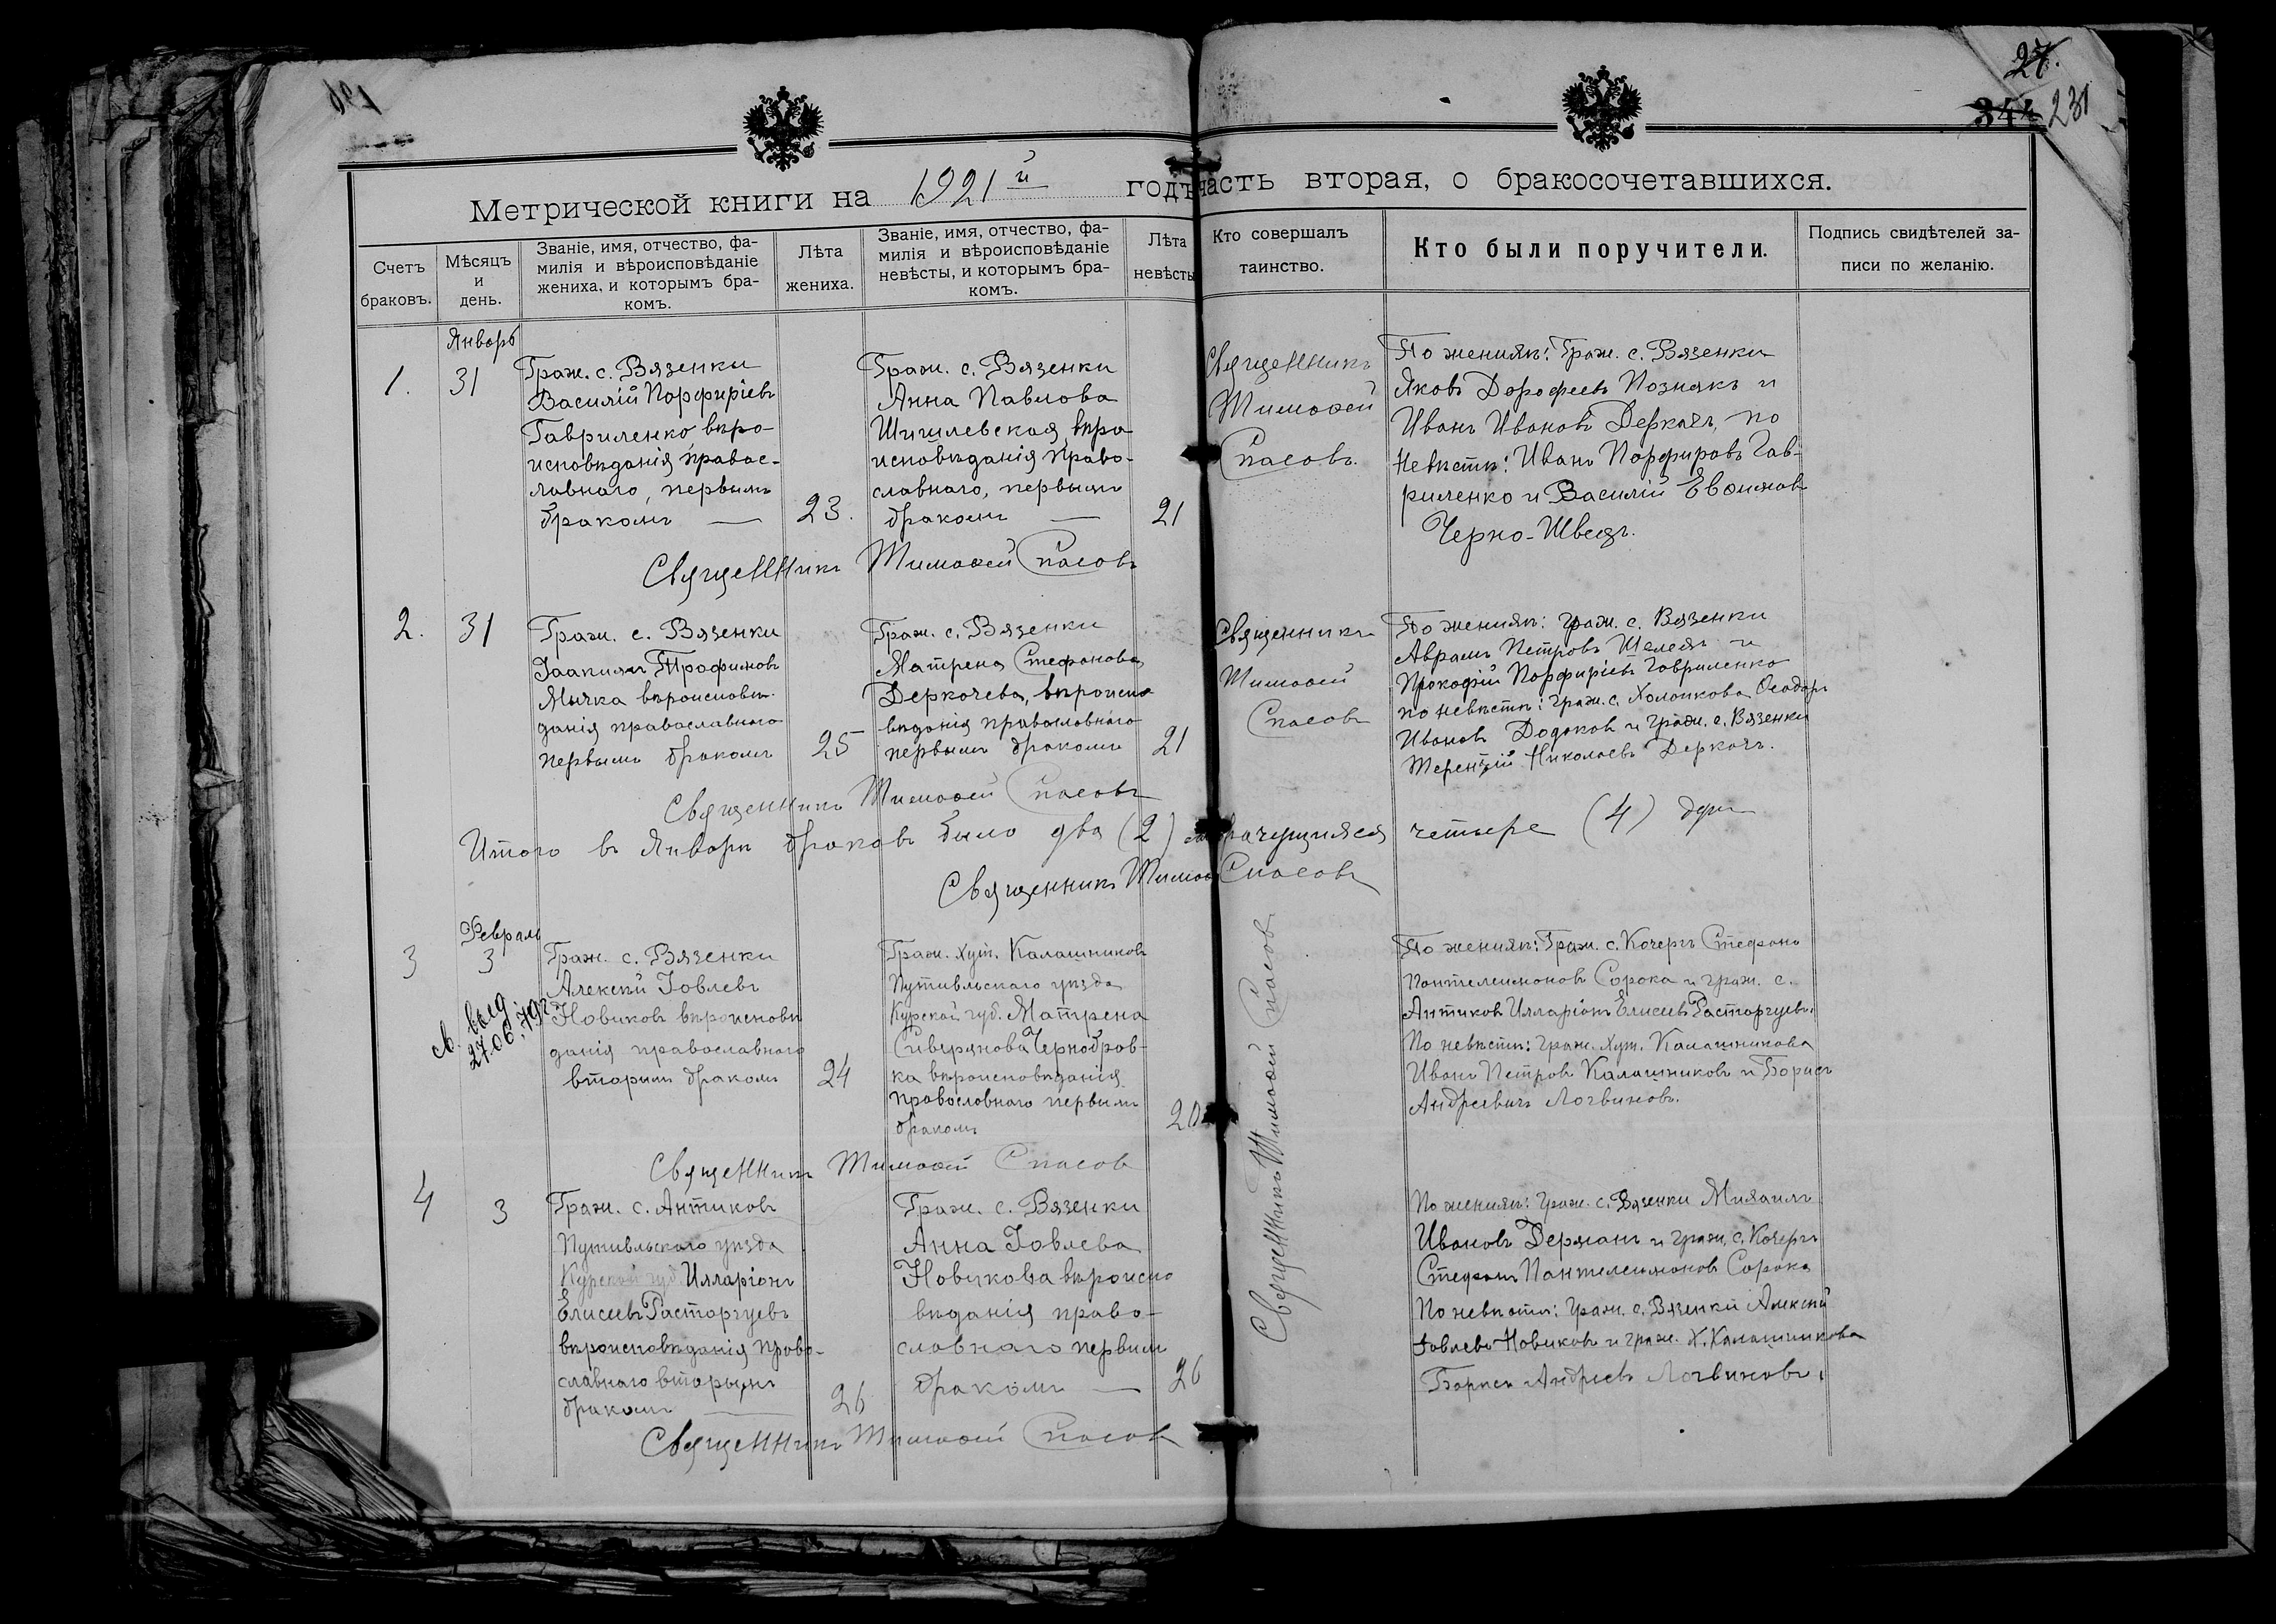 27.
344 231
Метрической книги на 1921й годъ часть вторая, о бракосочетавшихся.
Счетъ браковъ.
Мѣсяцъ и день.
Званіе, имя, отчество, фа-
милія и вѣроисповѣданіе
жениха, и которымъ бра-
комъ.
Лѣта
жениха.
Званіе, имя, отчество, фа-
милія и вѣроисповѣданіе
невѣсты, и которымъ бра-
комъ.
Лѣта
невѣсты
Кто совершалъ
таинство.
Кто были поручители.
Подпись свидѣтелей за-
писи по желанію.
Январь
1.
31
Граж. с. Вязенки
Василій Порфиріевъ
Гавриленко вѣро-
исповѣданія правос-
лавнаго, первымъ
бракомъ —
23.
Граж. с. Вязенки
Анна Павлова
Шигилевская вѣро
исповѣданія право-
славнаго, первымъ
бракомъ —
21
Священникъ
Тимоѳей
Спасовъ.
По женихѣ: Граж. с. Вязенки
Яковъ Дорофеевъ Познякъ и
Иванъ Ивановъ Деркачъ, по
невѣстѣ: Иванъ Порфировъ Гав-
риленко и Василій Евѳимовъ
Черно-Швецъ.
Священникъ Тимоѳей Спасовъ
2.
31
Граж. с. Вязенки
Іоакимъ Трофимовъ
Мычка вѣроисповѣ-
данія православнаго
первымъ бракомъ
25
Граж. с. Вязенки
Матрена Стефанова
Деркачева, вѣроиспо
вѣданія православнаго
первымъ бракомъ
21
Священникъ
Тимоѳей
Спасовъ
По женихѣ: граж. с. Вязенки
Аврамъ Петровъ и
Прокофій Порфиріевъ Гавриленко
по невѣстѣ: граж. с. Ѳеодоръ
Ивановъ и граж. с. Вязенки
Терентій Николаевъ Деркачъ.
Священникъ Тимоѳей Спасовъ
Итого въ Январѣ браковъ было два (2) четыре (4)
Священникъ Тимоѳ Спасовъ
Февраль
3
3
св. выд
27.06.79г
Граж. с. Вязенки
Алексѣй Іовлевъ
Новиковъ вѣроисповѣ
данія православнаго
вторымъ бракомъ
24
Граж. хут. Калашниковъ
Путивльскаго уѣзда
Курской губ. Матрена
Сиверянова Чернобров-
ка вѣроисповѣданія
православнаго первымъ
бракомъ
20
Священникъ Тимоѳей Спасовъ
По женихѣ: Граж. с. Кочергъ Стефанъ
Пантелеимоновъ Сорока и граж. с.
Антиковъ Илларіонъ Елисеевъ Расторгуевъ.
По невѣстѣ: граж. хут. Калашникова
Иванъ Петровъ Калашниковъ и Борисъ
Андреевичъ Логвиновъ.
Священникъ Тимоѳей Спасовъ
4
3
Граж. с. Антиковъ
Путивльскаго уѣзда
Курской губ. Илларіонъ
Елисеевъ Расторгуевъ
вѣроисповѣданія право-
славнаго вторымъ
бракомъ —
26
Граж. с. Вязенки
Анна Іовлева
Новикова вѣроиспо
вѣданія право-
славнаго первымъ
бракомъ —
26
По женихѣ: граж. с. Вязенки Михаилъ
Ивановъ Держанъ и граж. с. Кочергъ
Стефанъ Пантелеимоновъ Сорока
По невѣстѣ: граж. с. Вязенки Алексѣй
Іовлевъ Новиковъ и граж. х. Калашникова
Борисъ Андреевъ Логвиновъ.
Священникъ Тимоѳей Спасовъ